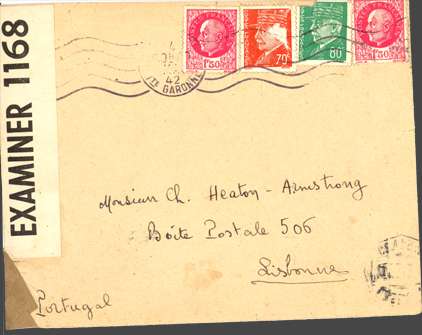 EXAMINER 1168
4
42
TE GARONNE
1F50
70c
80c
1F50
Monsieur Ch. Heaton-Armstrong
Boîte Postale 506
Lisbonne
Portugal